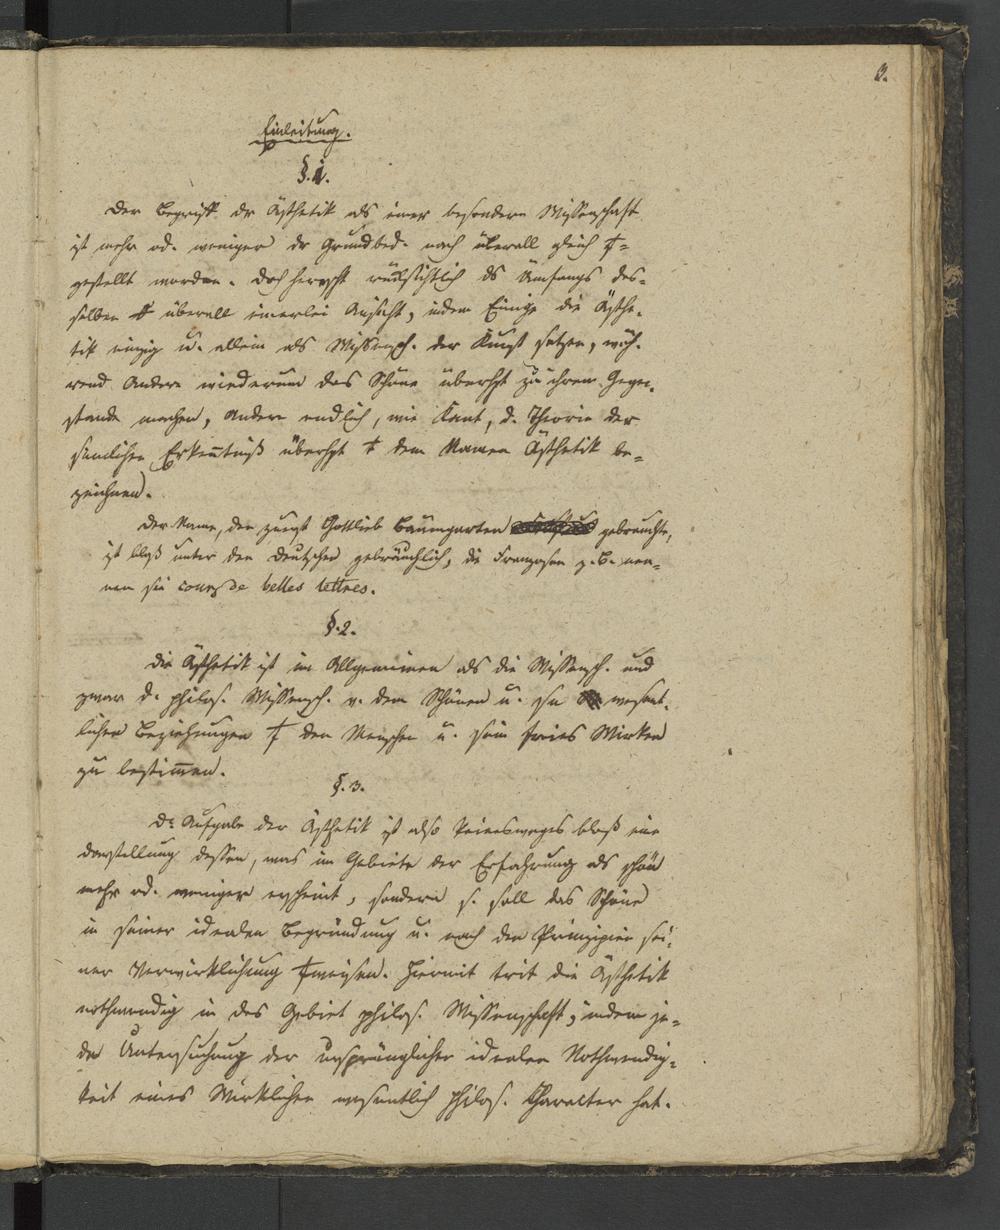 3.
Einleitung.
§.1.
Der Begriff dr Ästhetik als einer besondern Wissenschaft
ist mehr od. weniger dr Grundbed. nach überall gleich
gestellt worden. Doch herrscht rücksichtlich ds Umfangs des-
selben überall einerlei Ansicht, indem Einige die Ästhe-
tik einzig u. allein als Wissensch. der Kunst setzen, wäh-
rend Andere wiederum das Schöne überhpt zu ihrem Gegen-
stande machen, Andere endlich, wie Kant, d. Theorie der
sinnlichen Erkenntniß überhpt † dem Namen Ästhetik be-
zeichnen.
Der Name, den zuerst Gottlieb Baumgarten gebrauchte,
ist bloß unter den Deutschen gebräuchlich, die Franzosen z. B. nen-
nen sie cours de belles lettres.
§.2.
Die Ästhetik ist im Allgemeinen als die Wissensch. und
zwar d. philos. Wissensch. v. dem Schönen u. sn wesent-
lichen Beziehungen † den Menschen u. sein freies Wirken
zu bestimmen.
§.3.
De Aufgabe der Ästhetik ist also keineswegs bloß eine
Darstellung dessen, was im Gebiete der Erfahrung als schön
mehr od. weniger erscheint, sondern s. soll das Schöne
in seiner idealen Begründung u. nach den Prinzipien sei-
ner Verwirklichung †weisen. Hiermit trit die Ästhetik
nothwendig in das Gebiet philos. Wissenschaft; indem je-
de Untersuchung der ursprünglichen idealen Nothwendig-
keit eines Wirklichen wesentlich philos. Charakter hat.